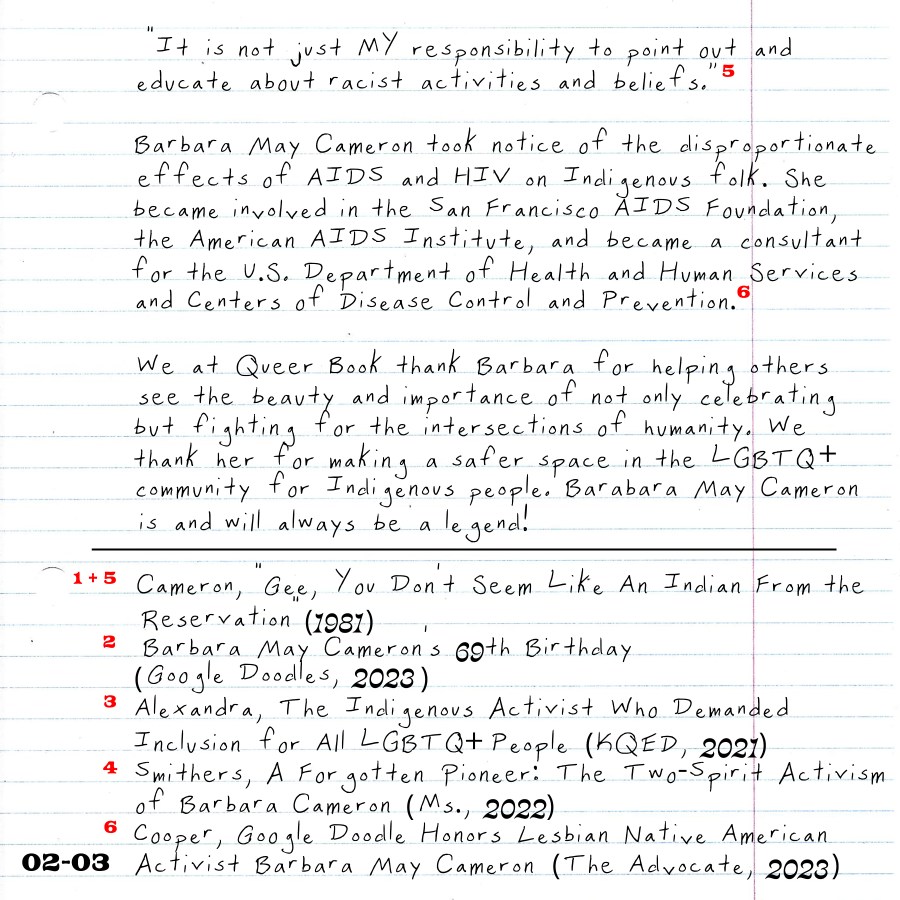 "It is not just MY responsibility to point out and
educate about racist activities and beliefs."5
Barbara May Cameron took notice of the disproportionate
effects of AIDS and HIV on Indigenous folk. She
became involved in the San Francisco AIDS Foundation,
the American AIDS Institute, and became a consultant
for the U.S. Department of Health and Human Services
and Centers of Disease Control and Prevention.6
We at Queer Book thank Barbara for helping others
see the beauty and importance of not only celebrating
but fighting for the intersections of humanity. We
thank her for making a safer space in the LGBTQ+
community for Indigenous people. Barabara May Cameron
is and will always be a legend!
1+5 Cameron, "Gee, You Don't Seem Like An Indian From the
Reservation" (1981)
2 Barbara May Cameron's 69th Birthday
(Google Doodles, 2023)
3 Alexandra, The Indigenous Activist Who Demanded
Inclusion for All LGBTQ+ People (KQED, 2021)
4 Smithers, A Forgotten Pioneer: The Two-Spirit Activism
of Barbara Cameron (Ms., 2022)
6 Cooper, Google Doodle Honors Lesbian Native American
02-03 Activist Barbara May Cameron (The Advocate, 2023)